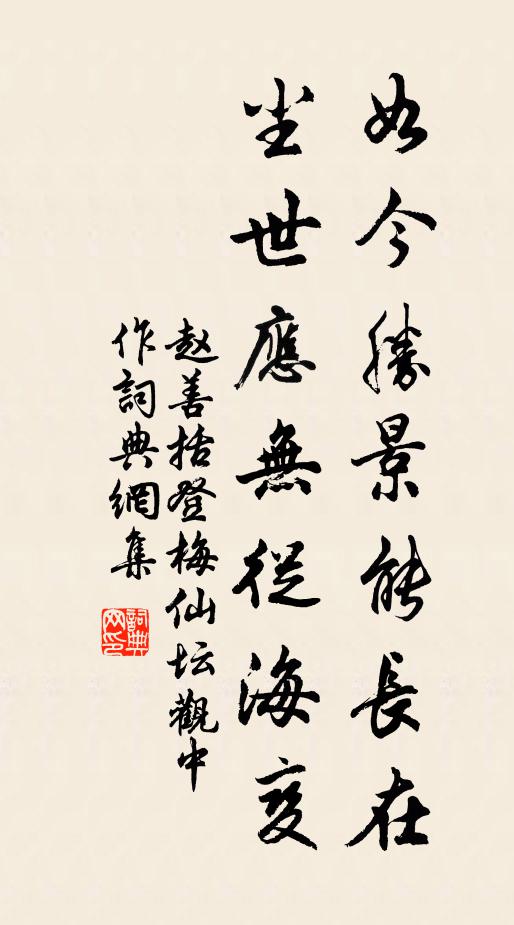 如今勝景能長在
尘世應無從海变
赵善括登梅仙坛觀中
作詞典網集
詞典
网印